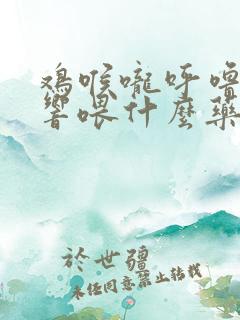 鸡喉嚨呼噜
響喂什麽藥
於世疆
未经同意禁止转载